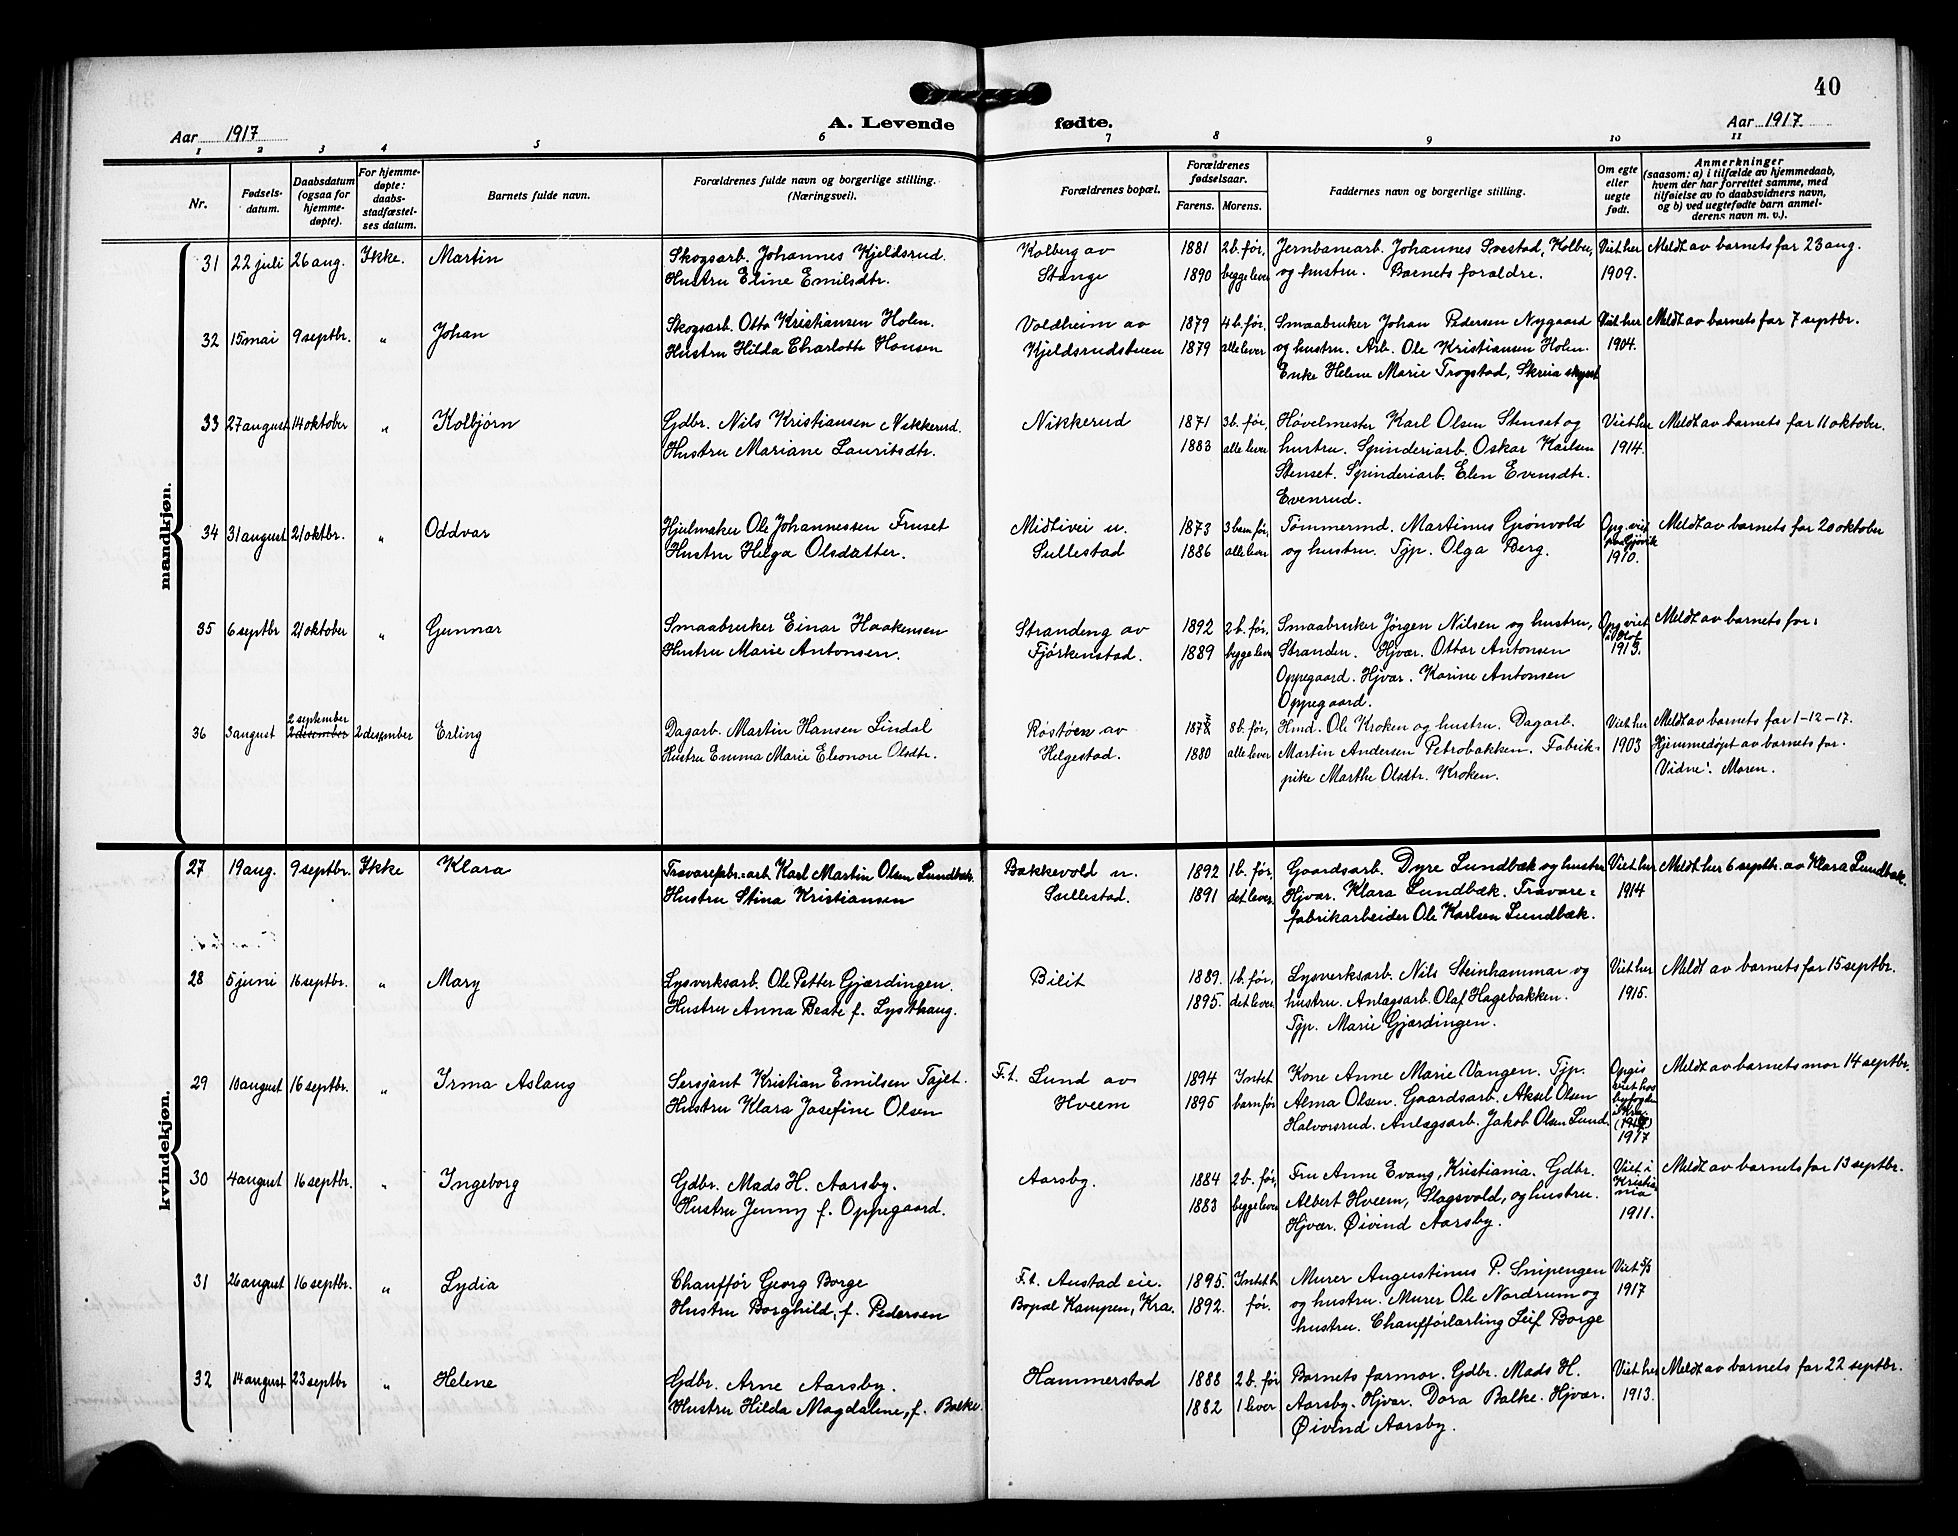 40
A. Levende fødte.
Aar 1917
Aar 1917
1 2 3 4 5 6 7 8 9 10 11
Nr.
Fødsels-
datum.
Daabsdatum
(ogsaa for
hjemme-
døpte).
For hjemme-
døpte:
daabs-
stadfæstel-
ses datum.
Barnets fulde navn.
Forældrenes fulde navn og borgerlige stilling.
(Næringsvei).
Forældrenes bopæl.
Forældrenes
fødselsaar.
Farens. Morens.
Faddernes navn og borgerlige stilling.
Om egte
eller
uegte
født.
Anmerkninger
(saasom: a) i tilfælde av hjemmedaab,
hvem der har forrettet samme, med
tilføielse av to daabsvidners navn,
og b) ved uegtefødte barn anmel-
derens navn m. v.).
mandkjøn.
31 22 juli 26 aug. Ikke. Martin
Skogsarb. Johannes Kjeldsrud.
Hustru Eline Emilsdtr.
Kolberg av
Stange
1881
1890
2 b. før,
begge lever
Jernbanearb. Johannes Svestad, Kolbu,
og hustru. Barnets forældre.
Viet her
1909.
Meldt av barnets far 23 aug.
32 15 mai 9 septbr. " Johan
Skogsarb. Otto Kristiansen Holm.
Hustru Hilda Charlotte Hansen
Voldheim av
Kjeldsrudstuen
1879
1879
4 b. før,
alle lever
Smaabruker Johan Pedersen Nygaard
og hustru. Arb. Ole Kristiansen Holm.
Enke Helene Marie Trogstad, Skreia skyss
Viet her
1904.
Meldt av barnets far 7 septbr.
33 27 august 14 oktober " Kolbjørn
Gdbr. Nils Kristiansen Nikkerud.
Hustru Mariane Lauritsdtr.
Nikkerud
1871
1883
3 b. før,
alle lever
Høvelmester Karl Olsen Stenset og
hustru. Spinderiarb. Oskar Karlsen
Stenset. Spinderiarb. Elen Evensdtr.
Evenrud.
Viet her
1914.
Meldt av barnets far 11 oktober.
34 31 august 21 oktbr. " Oddvar
Hjulmaker Ole Johannessen Fruset
Hustru Helga Olsdatter.
Midtivei u.
Sullestad
1873
1886
3 barn før,
alle lever
Tømmermd. Martinus Grønvold
og hustru. Tjp. Olga Berg.
Opg. viet
paa Gjøvik
1910.
Meldt av barnets far 20 oktober
35 6 septbr 21 oktober " Gunnar
Smaabruker Einar Haakensen
Hustru Marie Antonsen.
Strandeng av
Fjørkenstad.
1892
1889
2 b. før,
begge lever
Smaabruker Jörgen Nilsen og hustru,
Stranden. Hjvar. Ottar Antonsen
Oppegaard. Hjvar. Karine Antonsen
Oppegaard.
Opg. viet
1913.
Meldt av barnets far.
36 3 august 2 september
2 desember 2 desember Erling
Dagarb. Martin Hansen Lindal
Hustru Emma Marie Eleonore Olsdtr.
Røstøen av
Helgestad.
1880
8 b. før,
alle lever
Kmd. Ole Kroken og hustru. Dagarb.
Martin Andersen Petrobakken. Fabrik-
pike Marthe Olsdtr. Kroken.
Viet her
1903
Meldt av barnets far 1-12-17.
Hjemmedøpt av barnets far.
Vidne: Moren.
kvindekjøn.
27 19 aug. 9 septbr. Ikke Klara
Trævarefbr.arb. Karl Martin Olsen Lundbæk.
Hustru Stina Kristiansen
Bakkevold u.
Sullestad.
1892
1891
1 b. før,
det lever
Gaardsarb. Dyre Lundbæk og hustru
Hjvar. Klara Lundbæk. Trævare=
fabrikarbeider Ole Karlsen Lundbæk.
Viet her
1914
Meldt her 6 septbr. av Klara Lundbæk.
28 5 juni 16 septbr. " Mary
Lysverksarb. Ole Petter Gjærdingen.
Hustru Anna Beate f. Lysthaug.
Bilit
1889.
1895.
1 b. før,
det lever
Lysverksarb. Nils Steinhammar og
hustru. Anlægsarb. Olaf Hagebakken.
Tjp. Marie Gjærdingen.
Viet her
1915.
Meldt av barnets far 15 septbr.
29 10 august 16 septbr. " Irma Aslaug
Sersjant Kristian Emilsen Tajet.
Hustru Klara Josefine Olsen
F. t. Lund av
Hveem
1894
1895
Intet
barn før
Kone Anne Marie Vangen. Tjp.
Alma Olsen. Gaardsarb. Aksel Olsen
Halvorsrud. Anlægsarb. Jakob Olsen Lund.
Opgis
viet hos
byfogden
i Kra.
1917
Meldt av barnets mor 14 septbr.
30 4 august 16 septbr. " Ingeborg
Gdbr. Mads H. Aarsby.
Hustru Jenny f. Oppegaard.
Aarsby.
1884
1883
2 b. før,
begge lever
Fru Anne Evang, Kristiania. Gdbr.
Albert Hveem, Slagsvold, og hustru.
Hjvar. Øivind Aarsby.
Viet i
Kristia
nia
1911.
Meldt av barnets far 13 septbr.
31 26 august 16 septbr. " Lydia
Chauffør Georg Borge
Hustru Borghild, f. Pedersen
F. t. Austad eie.
Bopæl Kampen, Kra.
1895.
1892.
Intet b.
før.
Murer Augustinus P. Snipengen
og hustru. Murer Ole Nordrum og
hustru. Chaufførlærling Leif Borge
Viet 6/5
1917
32 14 august 23 septbr " Helene
Gdbr. Arne Aarsby.
Hustru Hilda Magdalene, f. Balke.
Hammerstad
1888
1882
2 b. før
1 lever
Barnets farmor. Gdbr. Mads H.
Aarsby. Hjvar. Dora Balke. Hjvar.
Øivind Aarsby.
Viet her
1913.
Meldt av barnets far 22 septbr.